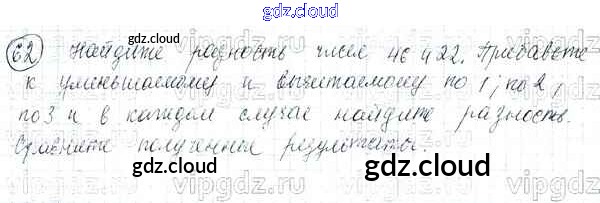 gdz.cloud
62 Найдите разность чисел 46 и 22. Прибавьте
к уменьшаемому и вычитаемому по 1, по 2,
по 3 и в каждом случае найдите разность.
Сравните полученные результаты.
gdz.cloud
gdz.cloud
vipgdz.cloud